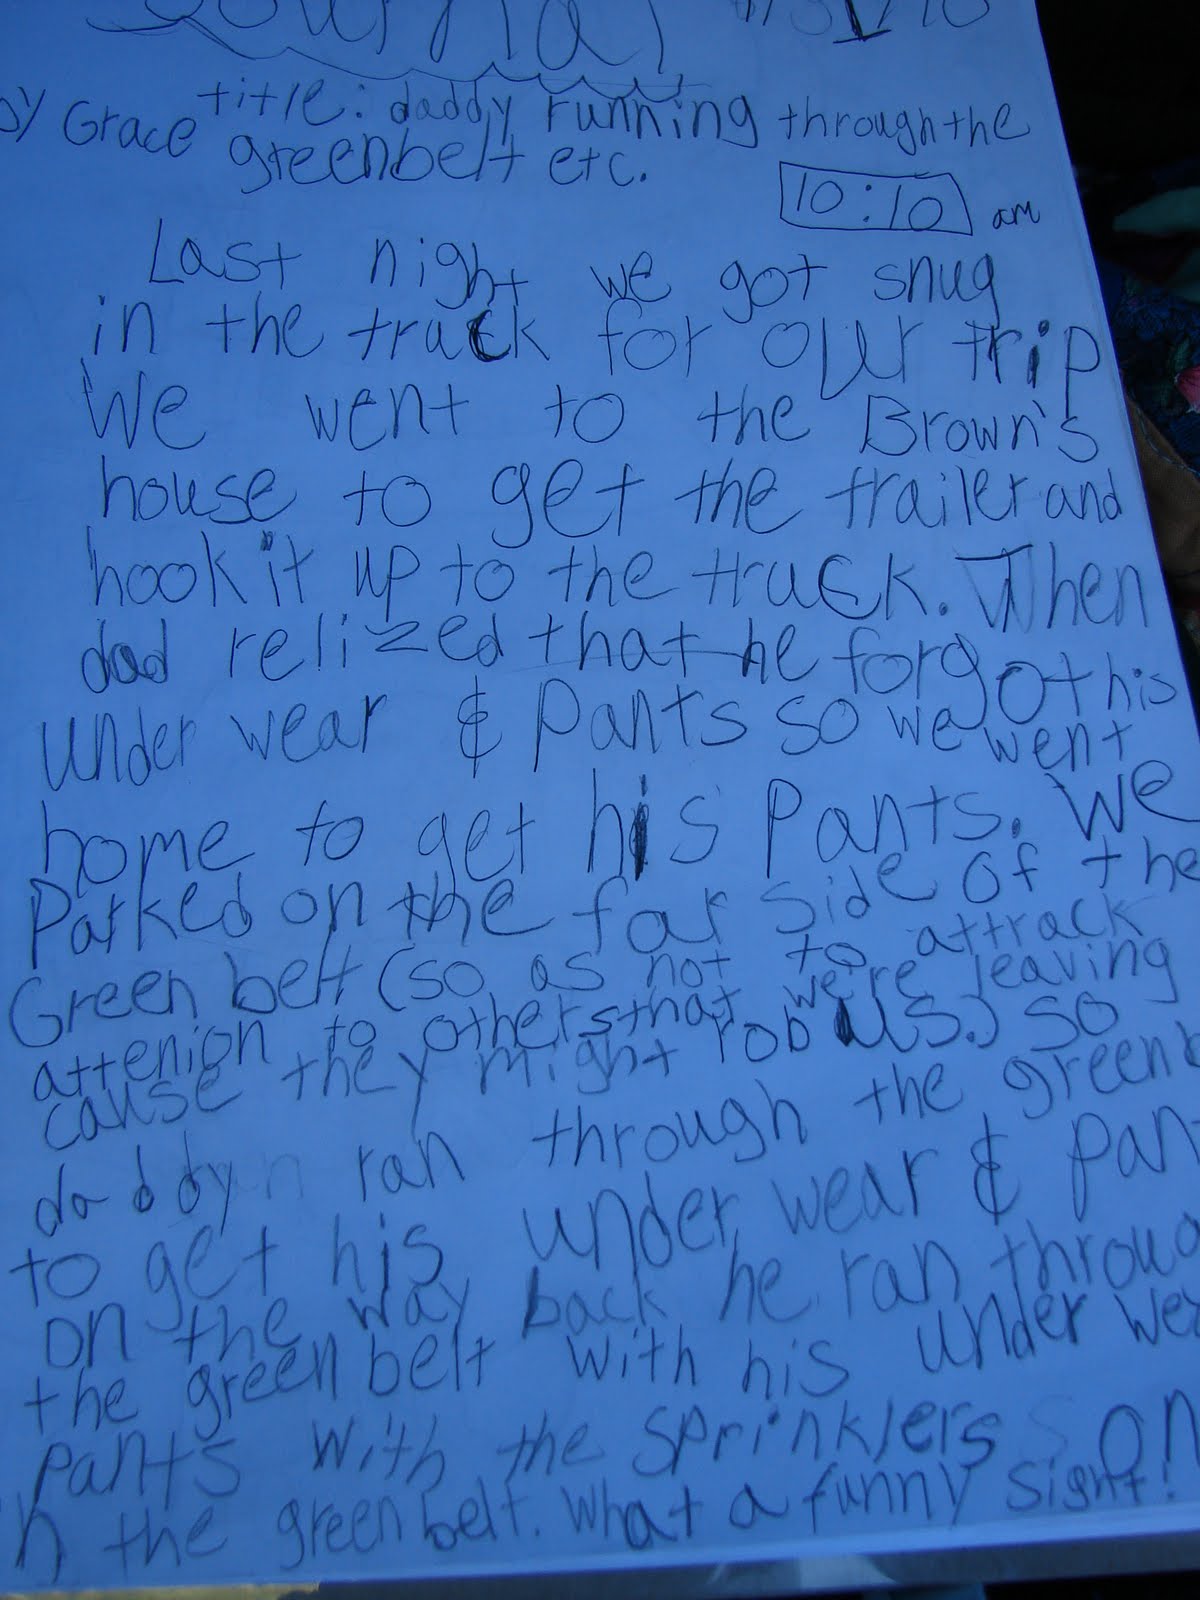 Journal
by Grace title: daddy running through the
greenbelt etc.
10:10 am
Last night we got snug
in the truck for our trip
We went to the Brown's
house to get the trailer and
hook it up to the truck. Then
dad relized that he forgot his
under wear & pants so we went
home to get his pants. We
Parked on the far side of the
Green belt (so as not to attrack
attenion to others that we're leaving
cause they might rob us.) so
daddy ran through the greenb
to get his under wear & pan
on the way back he ran throug
the greenbelt with his under wea
pants with the sprinklers on
n the greenbelt. What a funny sight!